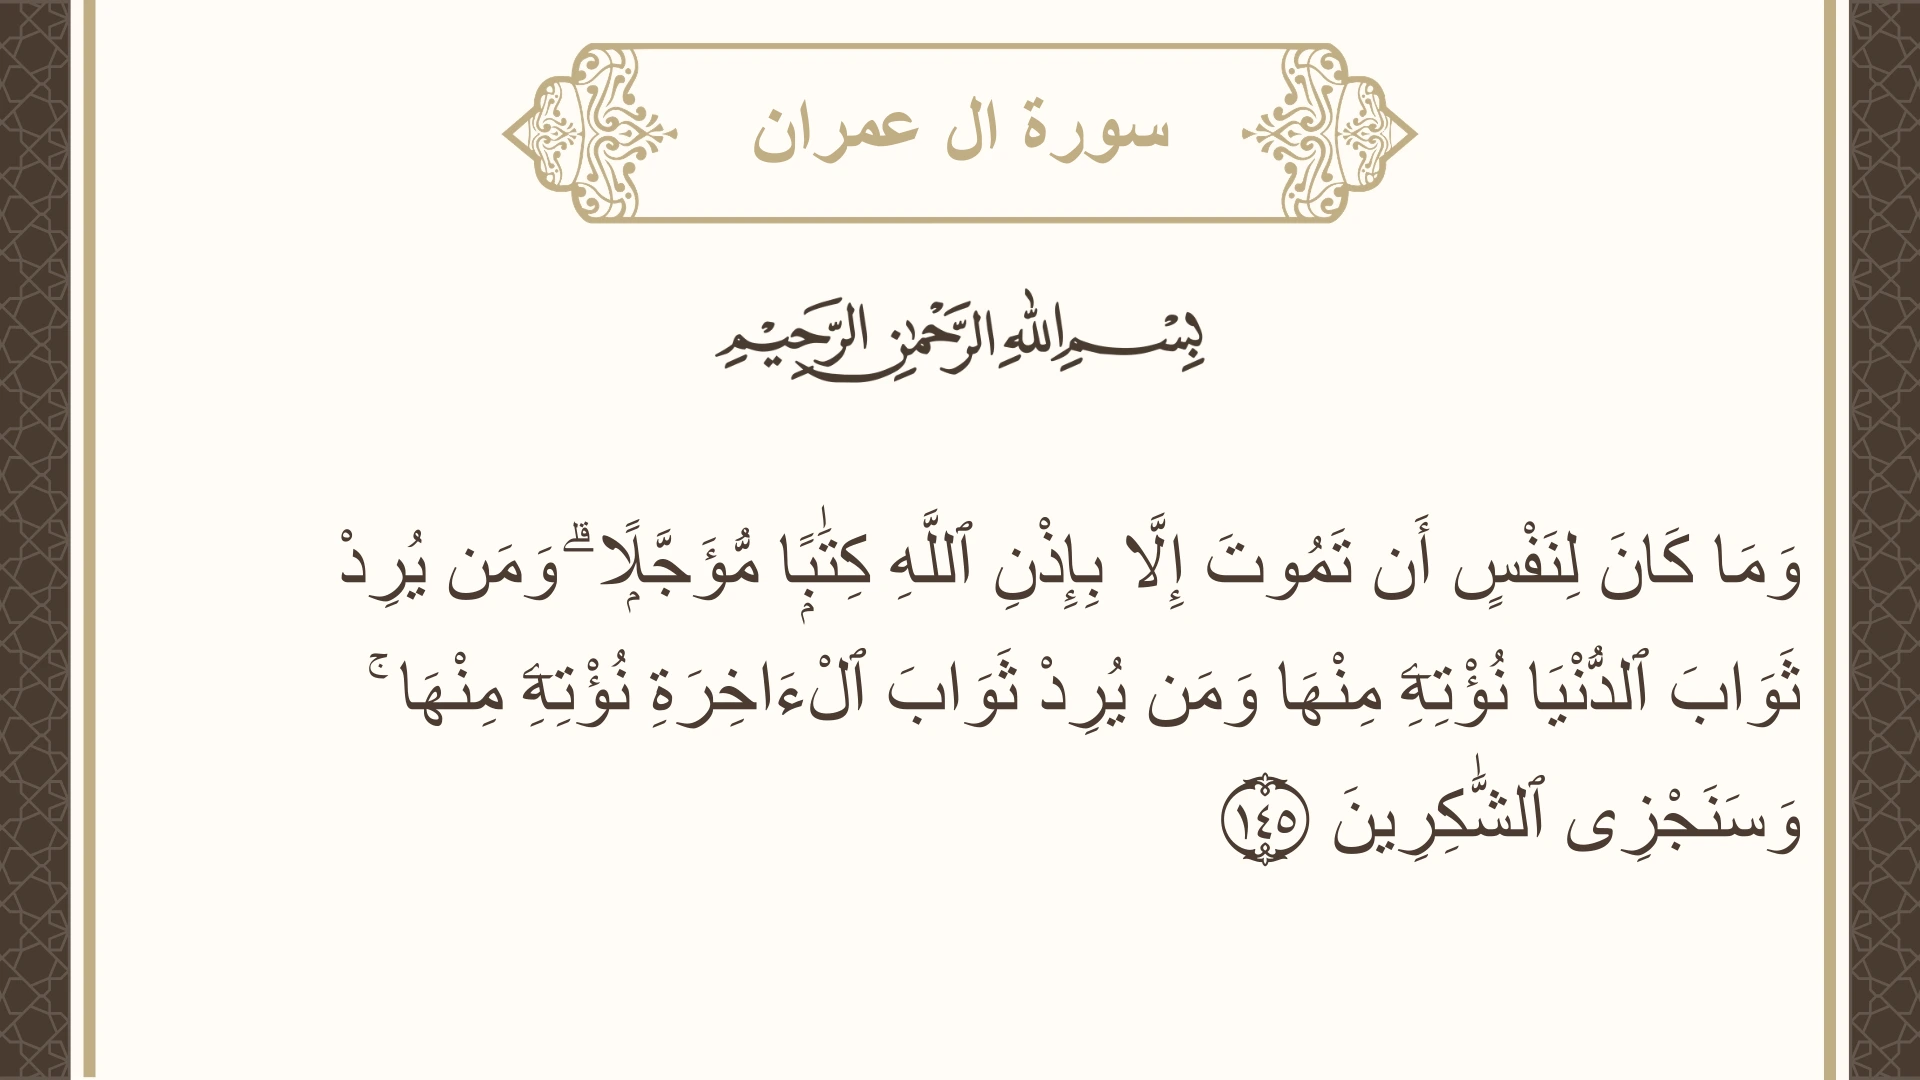 سورة ال عمران
بِسْمِ اللهِ الرَّحْمٰنِ الرَّحِيْمِ
وَمَا كَانَ لِنَفْسٍ أَن تَمُوتَ إِلَّا بِإِذْنِ ٱللَّهِ كِتَٰبًۭا مُّؤَجَّلًۭا ۗ وَمَن يُرِدْ
ثَوَابَ ٱلدُّنْيَا نُؤْتِهِۦ مِنْهَا وَمَن يُرِدْ ثَوَابَ ٱلْءَاخِرَةِ نُؤْتِهِۦ مِنْهَا ۚ
وَسَنَجْزِى ٱلشَّٰكِرِينَ ١٤٥